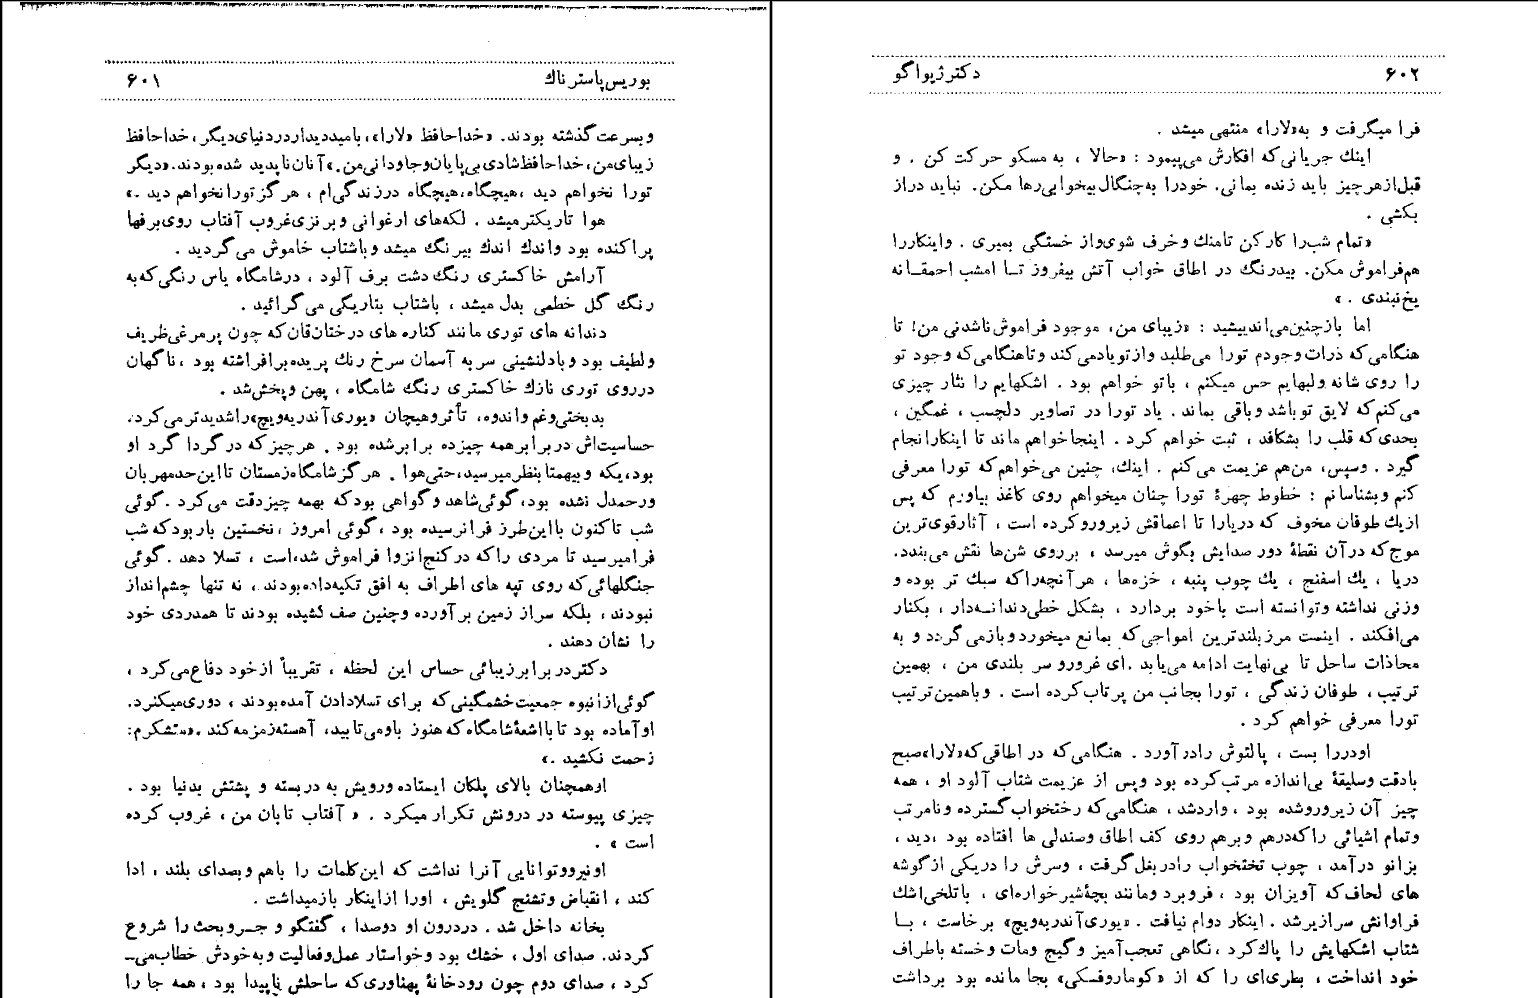 بوریس‌پاسترناك ۶۰۱
وبسرعت گذشته بودند. «خداحافظ «لارا»، بامیددیداردردنیای‌دیگر، خداحافظ
زیبای‌من، خداحافظ‌شادی بی‌پایان‌وجاودانی‌من.» آنان‌ناپدید شده‌بودند. «دیگر
تورا نخواهم دید ، هیچگاه، هیچگاه درزندگی‌ام ، هرگزتورانخواهم دید .»
هوا تاریکترمیشد . لکه‌های ارغوانی وبرنزی‌غروب آفتاب روی‌برفها
پراکنده بود واندك اندك بیرنگ میشد وباشتاب خاموش می‌گردید .
آرامش خاکستری رنگ دشت برف آلود ، درشامگاه یاس رنگی‌که‌به
رنگ گل خطمی بدل میشد ، باشتاب بتاریگی می‌گرائید .
دندانه های توری مانند کناره های درختان‌قان‌که چون پرمرغی‌ظریف
ولطیف بود وبادلنشینی سربه آسمان سرخ رنك پریده‌برافراشته بود ، ناگهان
درروی توری نازك خاکستری رنگ شامگاه ، پهن وپخش‌شد .
بدبختی‌وغم واندوه، تأثروهیجان «یوری‌آندریه‌ویچ»راشدیدترمی‌کرد.
حساسیت‌اش دربرابرهمه چیزده برابرشده بود . هرچیزکه درگردا گرد او
بود، یکه وبیهمتابنظرمیرسید، حتی‌هوا . هرگزشامگاه‌زمستان تااین‌حدمهربان
ورحمدل نشده بود، گوئی‌شاهد وگواهی بودکه بهمه چیزدقت می‌کرد . گوئی
شب تاکنون بااین‌طرز فرانرسیده بود ، گوئی امروز ، نخستین باربودکه شب
فرامیرسید تا مردی راکه درکنج‌انزوا فراموش شده‌است ، تسلا دهد . گوئی
جنگلهائی‌که روی تپه های اطراف به افق تکیه‌داده‌بودند ، نه تنها چشم‌انداز
نبودند ، بلکه سراز زمین برآورده وچنین صف کشیده بودند تا همدردی خود
را نشان دهند .
دکتردربرابرزیبائی حساس این لحظه ، تقریباً ازخود دفاع‌می‌کرد ،
گوئی‌ازانبوه جمعیت‌خشمگینی‌که برای تسلادادن آمده‌بودند ، دوری‌میکنرد.
اوآماده بود تابااشعهٔ‌شامگاه‌که هنوز باومی‌تابید، آهسته‌زمزمه‌کند .«متشکرم:
زحمت نکشید .»
اوهمچنان بالای پلکان ایستاده ورویش به دربسته و پشتش بدنیا بود .
چیزی پیوسته در درونش تکرار میکرد . « آفتاب تابان من ، غروب کرده
است » .
اونیرووتوانایی آنرا نداشت که این‌کلمات را باهم وبصدای بلند ، ادا
کند ، انقباض وتشنج گلویش ، اورا ازاینکار بازمیداشت .
بخانه داخل شد . دردرون او دوصدا ، گفتگو و جروبحث را شروع
کردند. صدای اول ، خشك بود وخواستار عمل‌وفعالیت و به‌خودش خطاب‌می‌ـ
کرد ، صدای دوم چون رودخانهٔ پهناوری‌که ساحلش ناپیدا بود ، همه جا را
۶۰۲ دکترژیواگو
فرا میگرفت و به«لارا» منتهی میشد .
اینك جریانی‌که افکارش می‌پیمود : «حالا ، به مسکو حرکت کن . و
قبل‌ازهرچیز باید زنده بمانی. خودرا به‌چنگال بیخوابی‌رها مکن. نباید دراز
بکشی .
«تمام شب‌را کارکن تامنك وخرف شوی‌واز خستگی بمیری . واینکاررا
هم‌فراموش مکن. بیدرنگ در اطاق خواب آتش بیفروز تـا امشب احمقـانه
یخ‌نبندی . »
اما بازچنین‌می‌اندیشید : «زیبای من، موجود فراموش‌ناشدنی من! تا
هنگامی‌که ذرات وجودم تورا می‌طلبد وازتویادمی‌کند وتاهنگامی‌که وجود تو
را روی شانه ولبهایم حس میکنم ، باتو خواهم بود . اشکهایم را نثار چیزی
می‌کنم‌که لایق توباشد وباقی بماند. یاد تورا در تصاویر دلچسب ، غمگین ،
بحدی‌که قلب را بشکافد ، ثبت خواهم کرد . اینجاخواهم ماند تا اینکارانجام
گیرد . وسپس، من‌هم عزیمت می‌کنم . اینك، چنین می‌خواهم‌که تورا معرفی
کنم وبشناسانم : خطوط چهرهٔ تورا چنان میخواهم روی کاغذ بیاورم که پس
ازیك طوفان مخوف که دریارا تا اعماقش زیروروکرده است ، آثارقوی‌ترین
موج‌که درآن نقطهٔ دور صدایش بگوش میرسد ، برروی شن‌ها نقش می‌بندد.
دریا ، یك اسفنج ، یك چوب پنبه ، خزه‌ها ، هرآنچه‌راکه سبك تر بوده و
وزنی نداشته وتوانسته است باخود بردارد ، بشکل خطی‌دندانـه‌دار ، بکنار
می‌افکند . اینست مرزبلندترین امواجی‌که بمانع میخوردوبازمی‌گردد و به
محاذات ساحل تا بی‌نهایت ادامه می‌یابد .ای غرورو سر بلندی من ، بهمین
ترتیب ، طوفان زندگی ، تورا بجانب من پرتاب‌کرده است . وباهمین‌ترتیب
تورا معرفی خواهم کرد .
اودررا بست ، پالتوش رادرآورد . هنگامی‌که در اطاقی که«لارا»صبح
بادقت وسلیقهٔ بی‌اندازه مرتب‌کرده بود وپس از عزیمت شتاب آلود او ، همه
چیز آن زیروروشده بود ، واردشد ، هنگامی‌که رختخواب‌گسترده ونامرتب
وتمام اشیائی راکه‌درهم وبرهم روی کف اطاق وصندلی ها افتاده بود ،دید ،
بزانو درآمد ، چوب تختخواب رادربغل‌گرفت ، وسرش را دریکی ازگوشه
های لحاف‌که آویزان بود ، فروبرد ومانند بچهٔ‌شیرخواره‌ای ، باتلخی‌اشك
فراوانش سرازیرشد . اینکار دوام نیافت . «یوری‌آندریه‌ویچ» برخاست ، بـا
شتاب اشکهایش را پاك‌کرد ، نگاهی تعجب‌آمیز وگیج ومات وخسته باطراف
خود انداخت ، بطری‌ای را که از «کوماروفسکی» بجا مانده بود برداشت